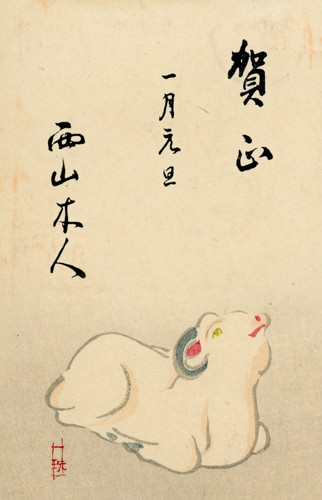 賀正
一月元旦
西山木人